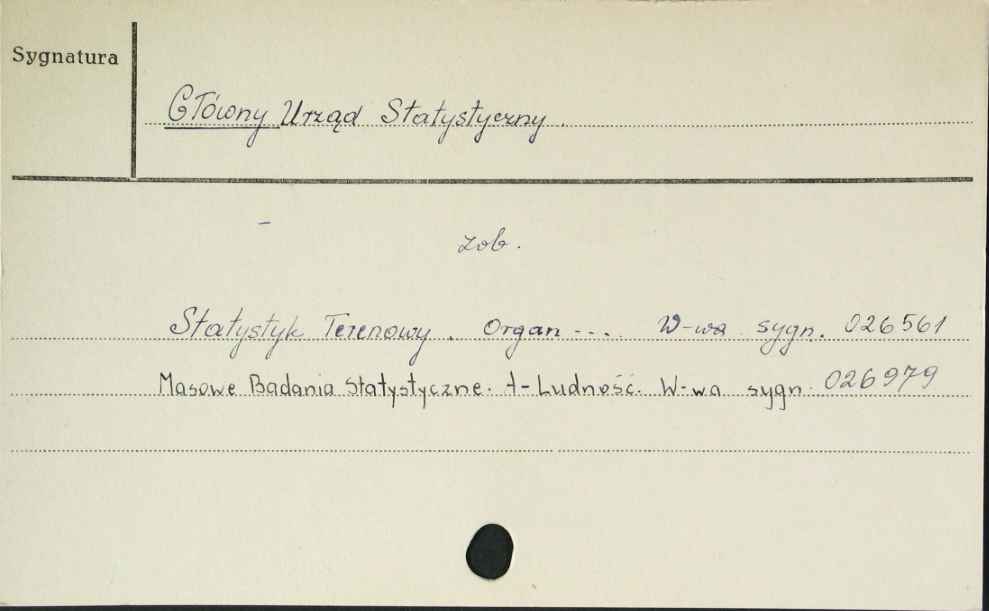 Sygnatura
Główny Urząd Statystyczny.
-
zob.
Statystyk Terenowy. Organ ---. W-wa sygn. 026561
Masowe Badania Statystyczne. A-Ludność. W-wa sygn. 026979